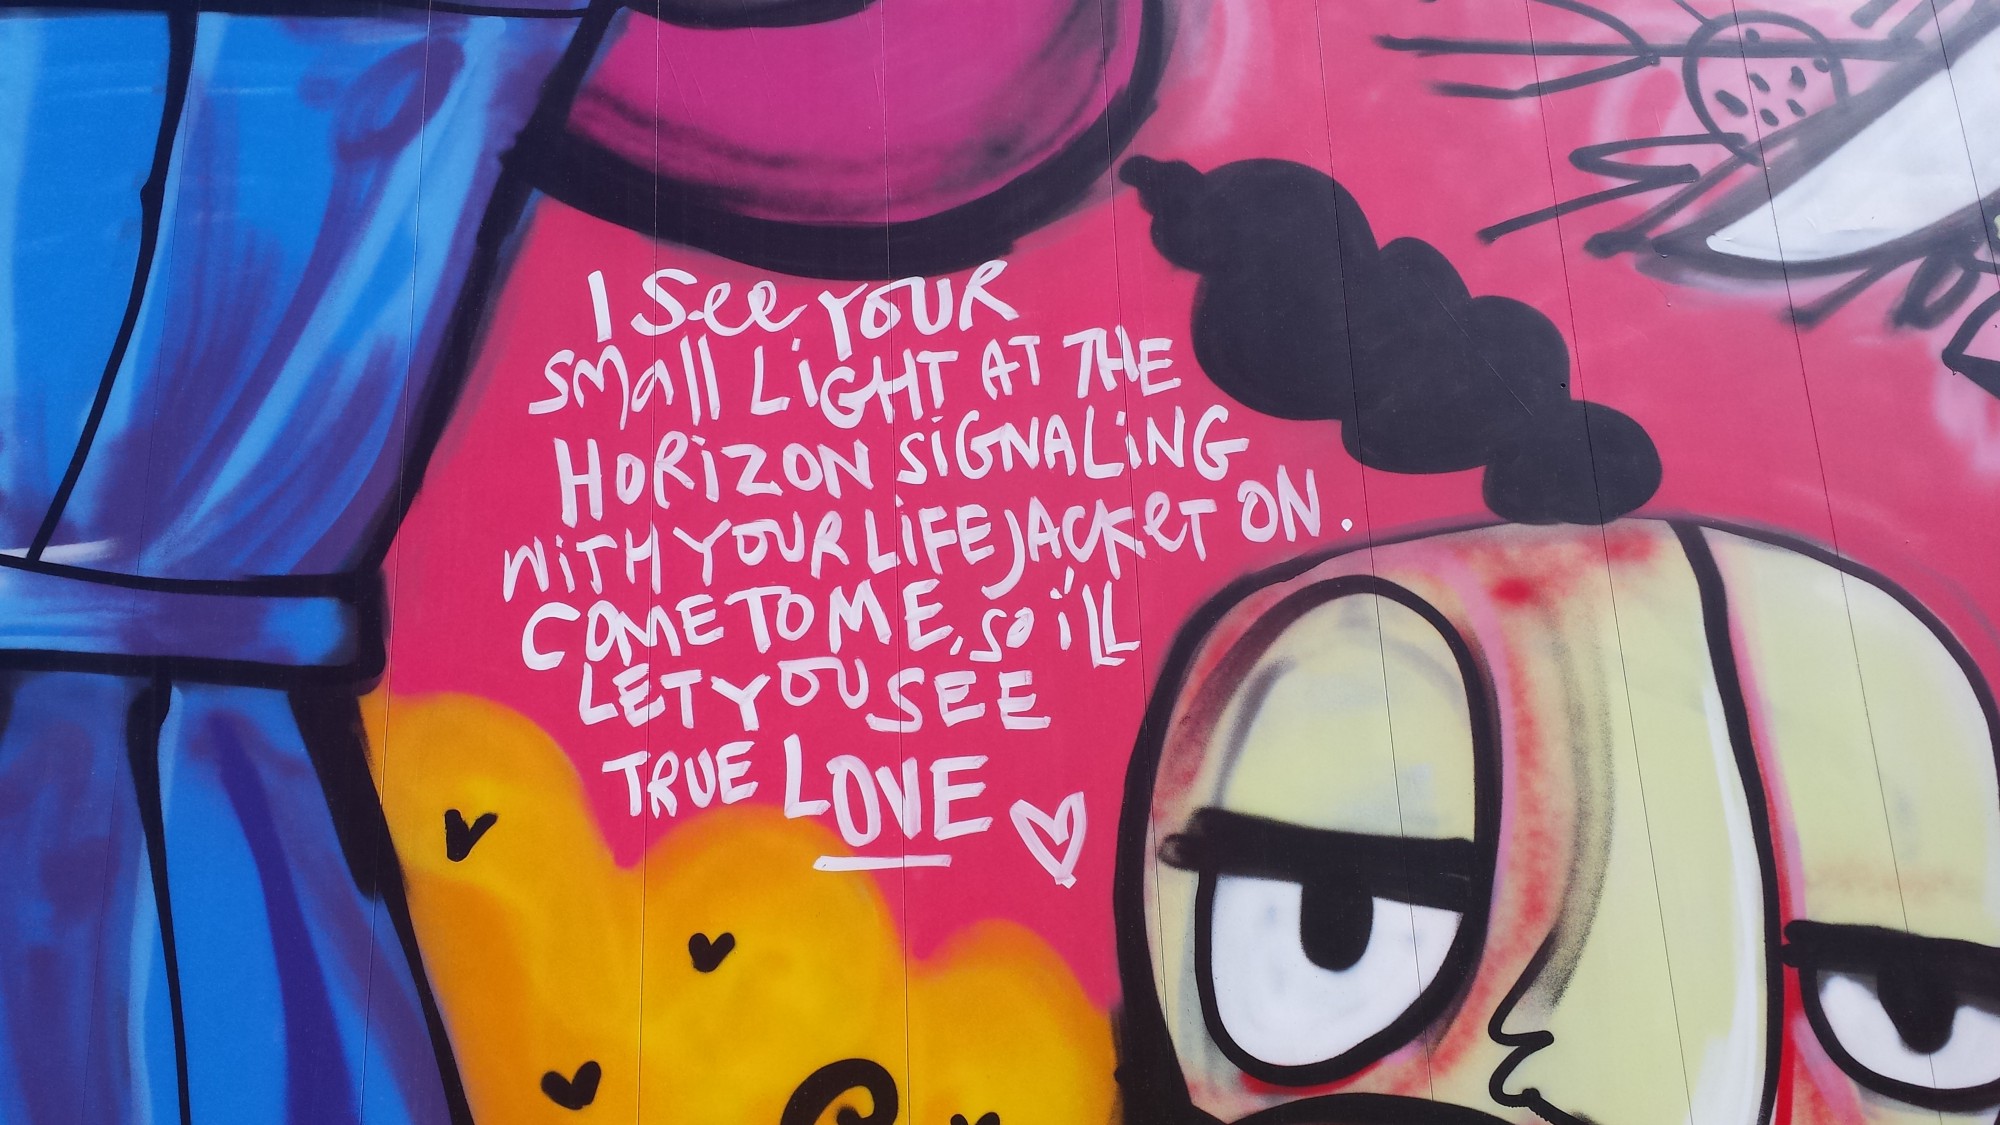 I See YOUR
Small LiGHT AT THE
HORiZON SiGNALiNG
WiTH YOUR LiFEJACKeT ON.
COME TO ME, so i'LL
LET YOU SEE
TRUE LOVE